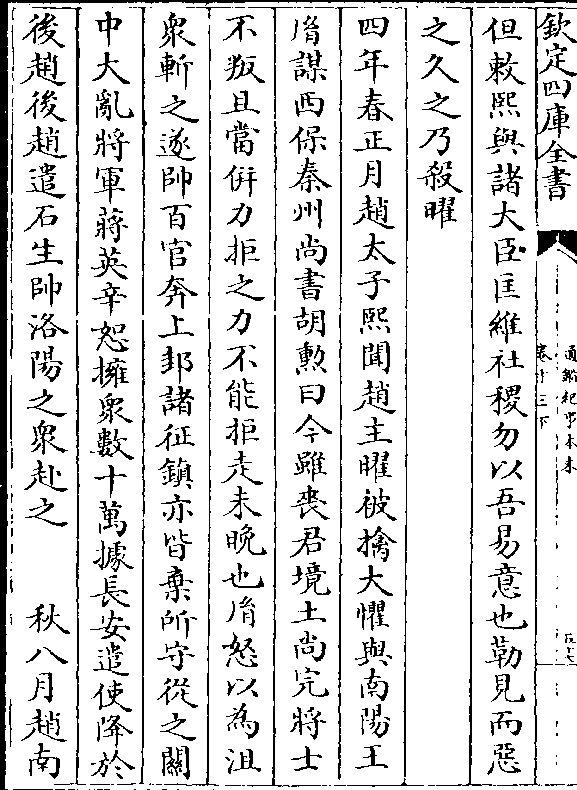 欽定四庫全書
通鑑紀事本末
卷十三下
但敕熙與諸大臣匡維社稷勿以吾易意也勒見而惡
之久之乃殺曜
四年春正月趙太子熙聞趙主曜被擒大懼與南陽王
胤謀西保秦州尚書胡勲曰今雖喪君境土尚完將士
不叛且當併力拒之力不能拒走未晚也胤怒以為沮
衆斬之遂帥百官奔上邽諸征鎮亦皆棄所守從之關
中大亂將軍蔣英辛恕擁衆數十萬據長安遣使降於
後趙後趙遣石生帥洛陽之衆赴之　　秋八月趙南